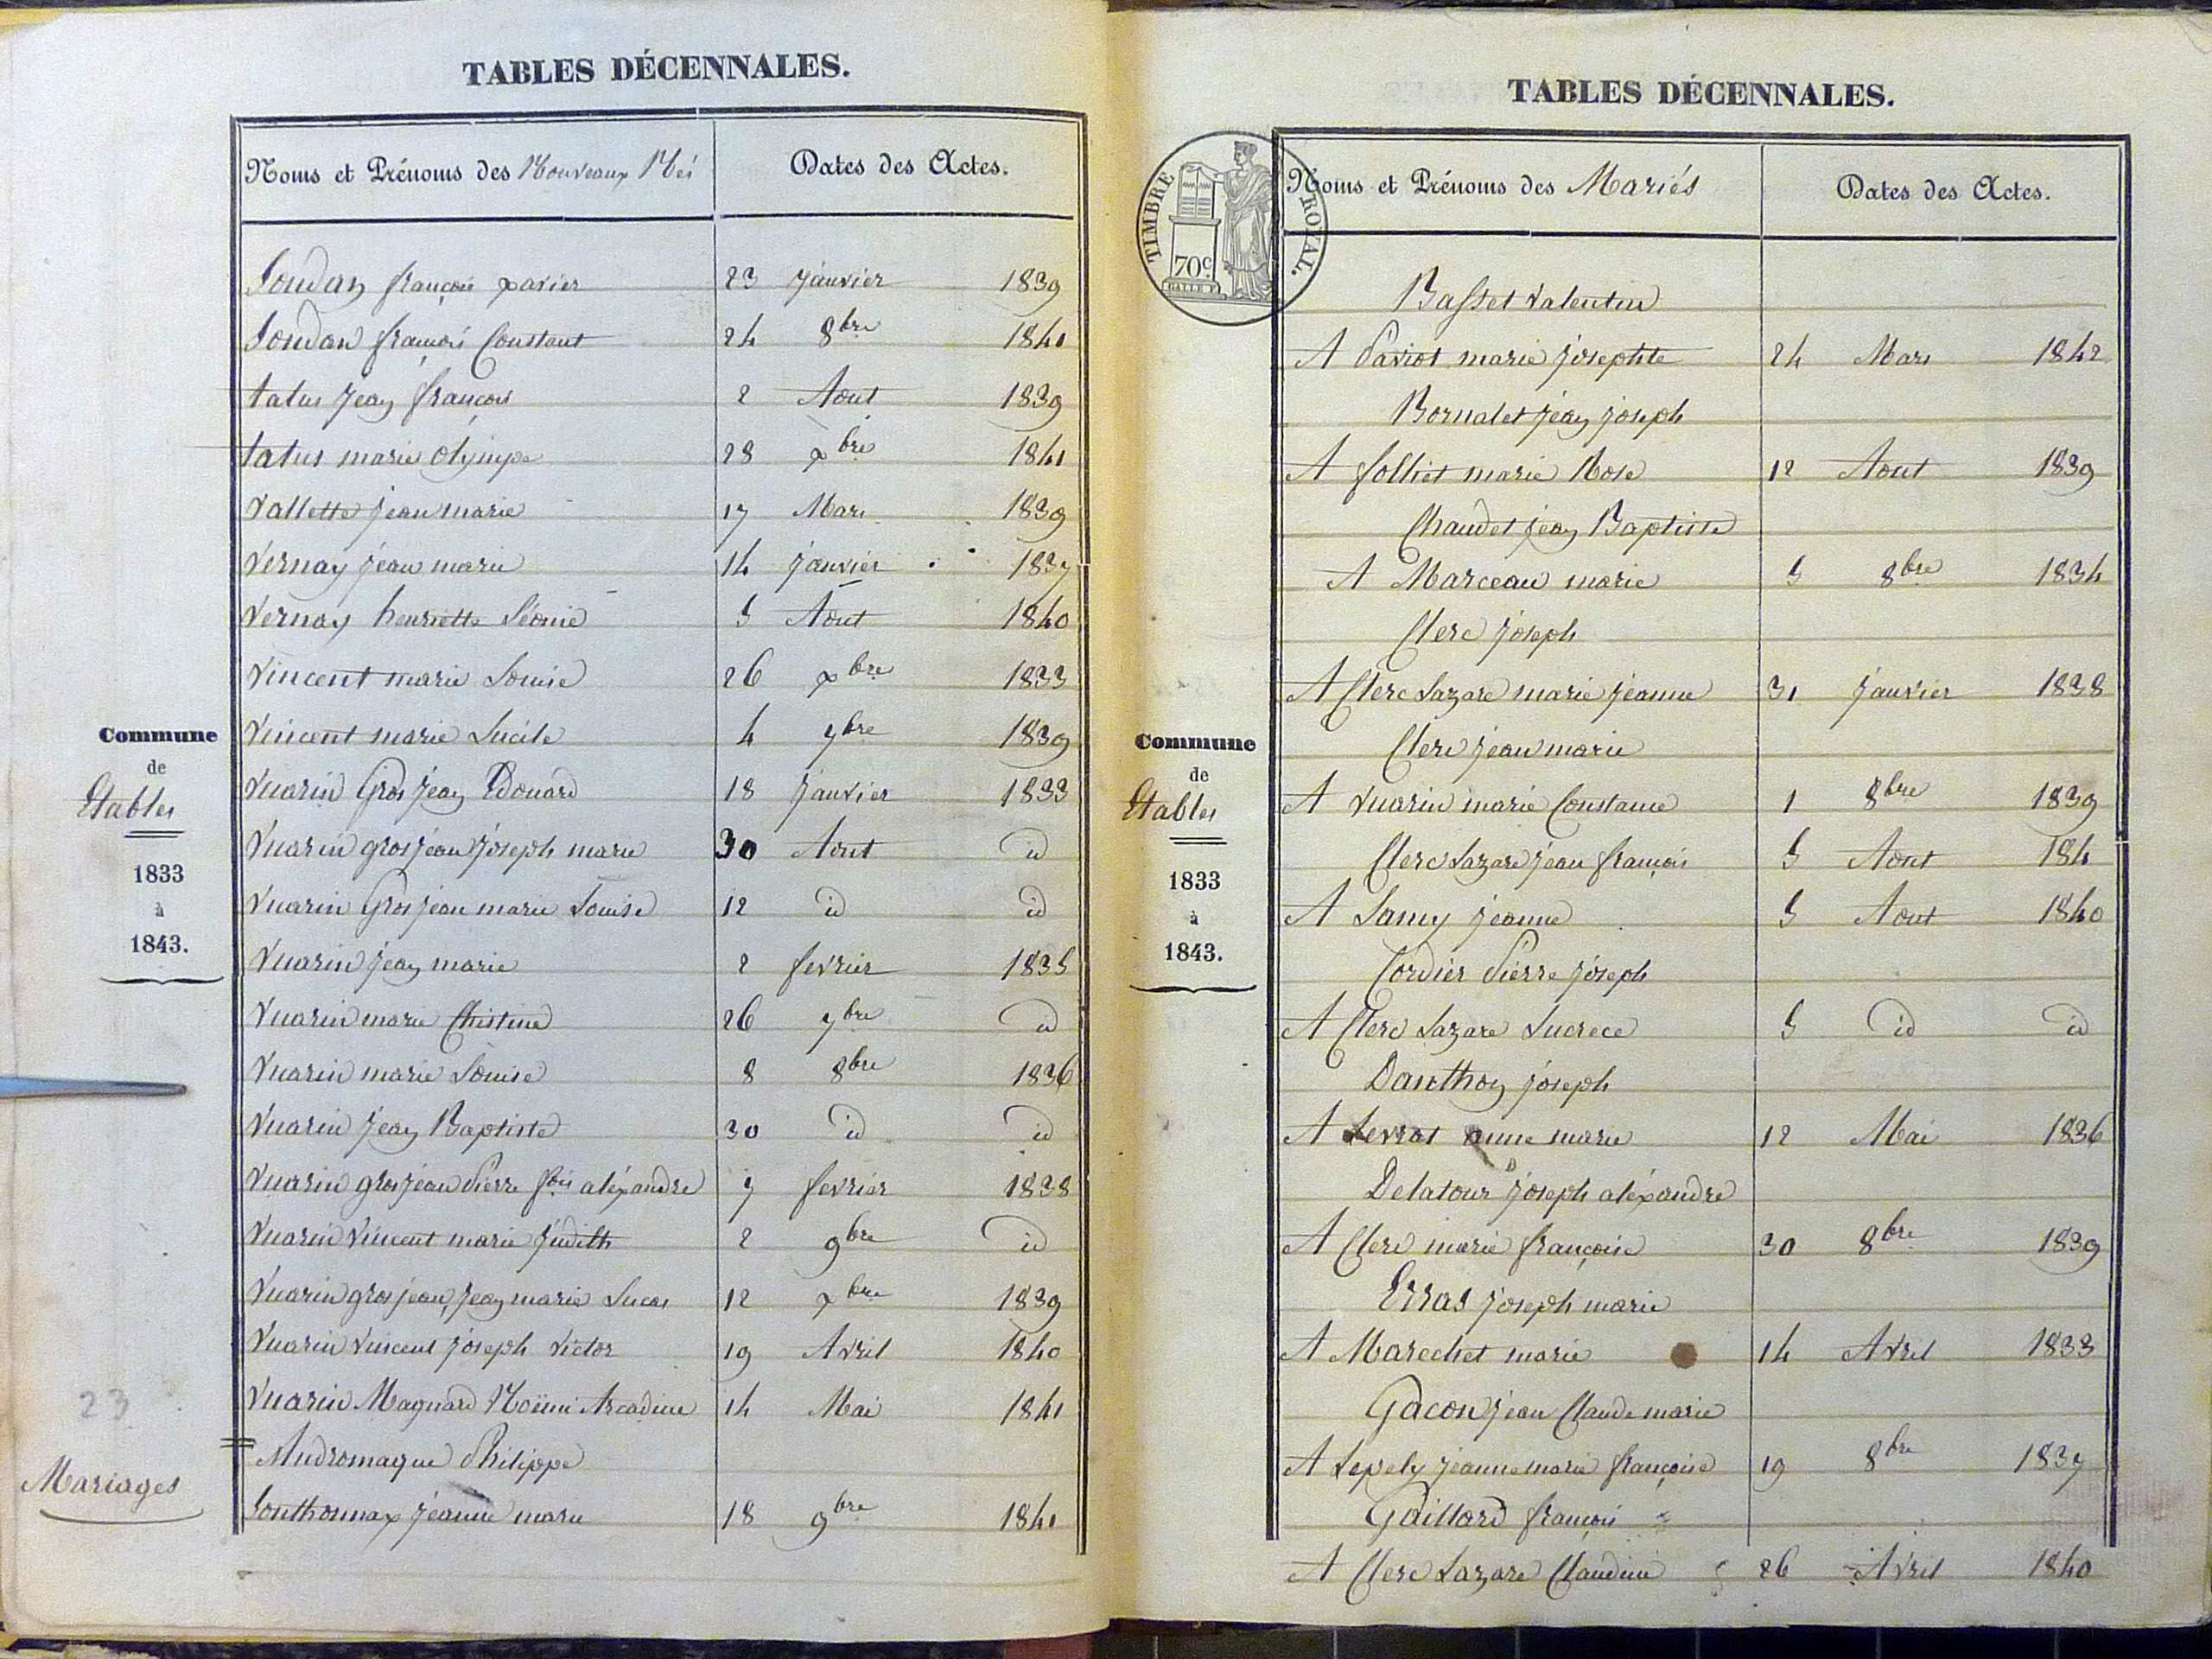 TABLES DÉCENNALES.
Noms et Prénoms des Nouveaux Nés Dates des Actes.
Joudan françois xavier 23 janvier 1839
Joudan françois Constant 24 8bre 1841
tatus Jean françois 2 Aout 1839
tatus marie olympe 28 xbre 1841
Vallette jean marie 17 Mars 1839
Vernay jean marie 14 janvier 1837
Vernay henriette Léonie 5 Aout 1840
Vincent marie Louise 26 xbre 1833
Vincent marie Lucile 4 7bre 1839
Vuarin Gros Jean Edouard 18 janvier 1833
Vuarin gros jean joseph marie 30 Aout id
Vuarin Gros jean marie Louise 12 id id
Vuarin jean marie 2 fevrier 1835
Vuarin marie Christine 26 7bre id
Vuarin marie Louise 8 8bre 1836
Vuarin jean Baptiste 30 id id
Vuarin gros jean Pierre fois aléxandre 7 fevrier 1838
Vuarin Vincent marie judith 2 9bre id
Vuarin gros jean, jean marie Lucas 12 xbre 1839
Vuarin Vincent joseph Victor 19 Avril 1840
Vuarin Magnard Noëmi Arcadine 14 Mai 1841
Andromaque Philippe
Gouthonnax jeanne marie 18 9bre 1841
Commune
de
Etables
1833
à
1843.
23
Mariages
TABLES DÉCENNALES.
TIMBRE ROYAL.
70c
Noms et Prénoms des Mariés Dates des Actes.
Basset Valentin
A Paviot marie josephte 24 Mars 1842
Bornalet jean joseph
A folliet marie Rose 12 Aout 1839
Chaudet jean Baptiste
A Marceau marie 5 8bre 1834
Clerc joseph
A Clerc Lazare marie jeanne 31 janvier 1838
Clerc jean marie
A Vuarin marie Constance 1 8bre 1839
Clerc Lazare jean françois 5 Aout 184
A Lamy jeanne 5 Aout 1840
Cordier Pierre joseph
A Clerc Lazare Lucrece 5 id id
Danthon joseph
A Levrat anne marie 12 Mai 1836
Delatour joseph aléxandre
A Clerc marie françoise 30 8bre 1839
Erras joseph marie
A Marechet marie 14 Avril 1833
Gacon jean Claude marie
A Lepely jeanne marie françoise 19 8bre 1837
Gaillard françois
A Clerc Lazare Claudine 26 Avril 1840
Commune
de
Etables
1833
à
1843.